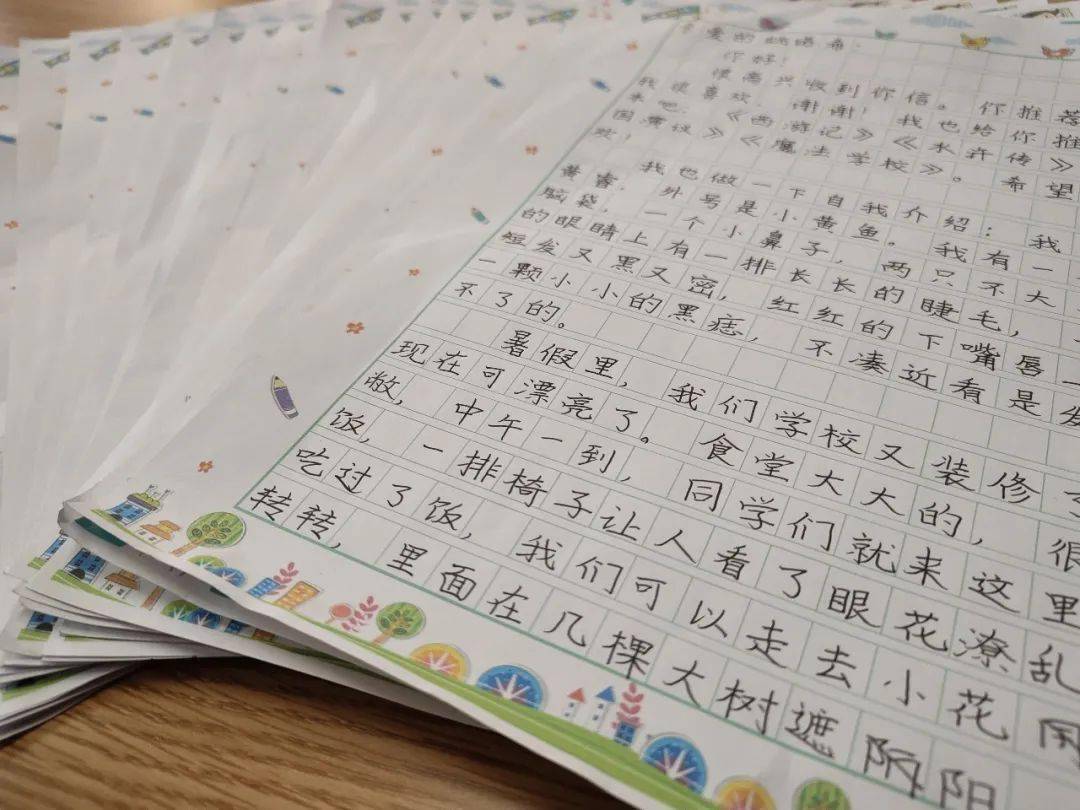 爱的
你好!
很高兴收到你信。你推荐
我很喜欢,谢谢!我也给你推
本吧。《西游记》《水浒传》
国演义》《魔法学校》。希望
欢!
我也做一下自我介绍:我
黄睿,外号是小黄鱼。我有一
脑袋,一个小鼻子,两只不大
的眼睛上有一排长长的睫毛,
短发又黑又密,红红的下嘴唇一
一颗小小的黑痣,不凑近看是发
不了的。
暑假里,我们学校又装修了
现在可漂亮了。食堂大大的,很
敞,中午一到,同学们就来这里
饭,一排椅子让人看了眼花潦乱
吃过了饭,我们可以走去小花
转转,里面在几棵大树遮阳